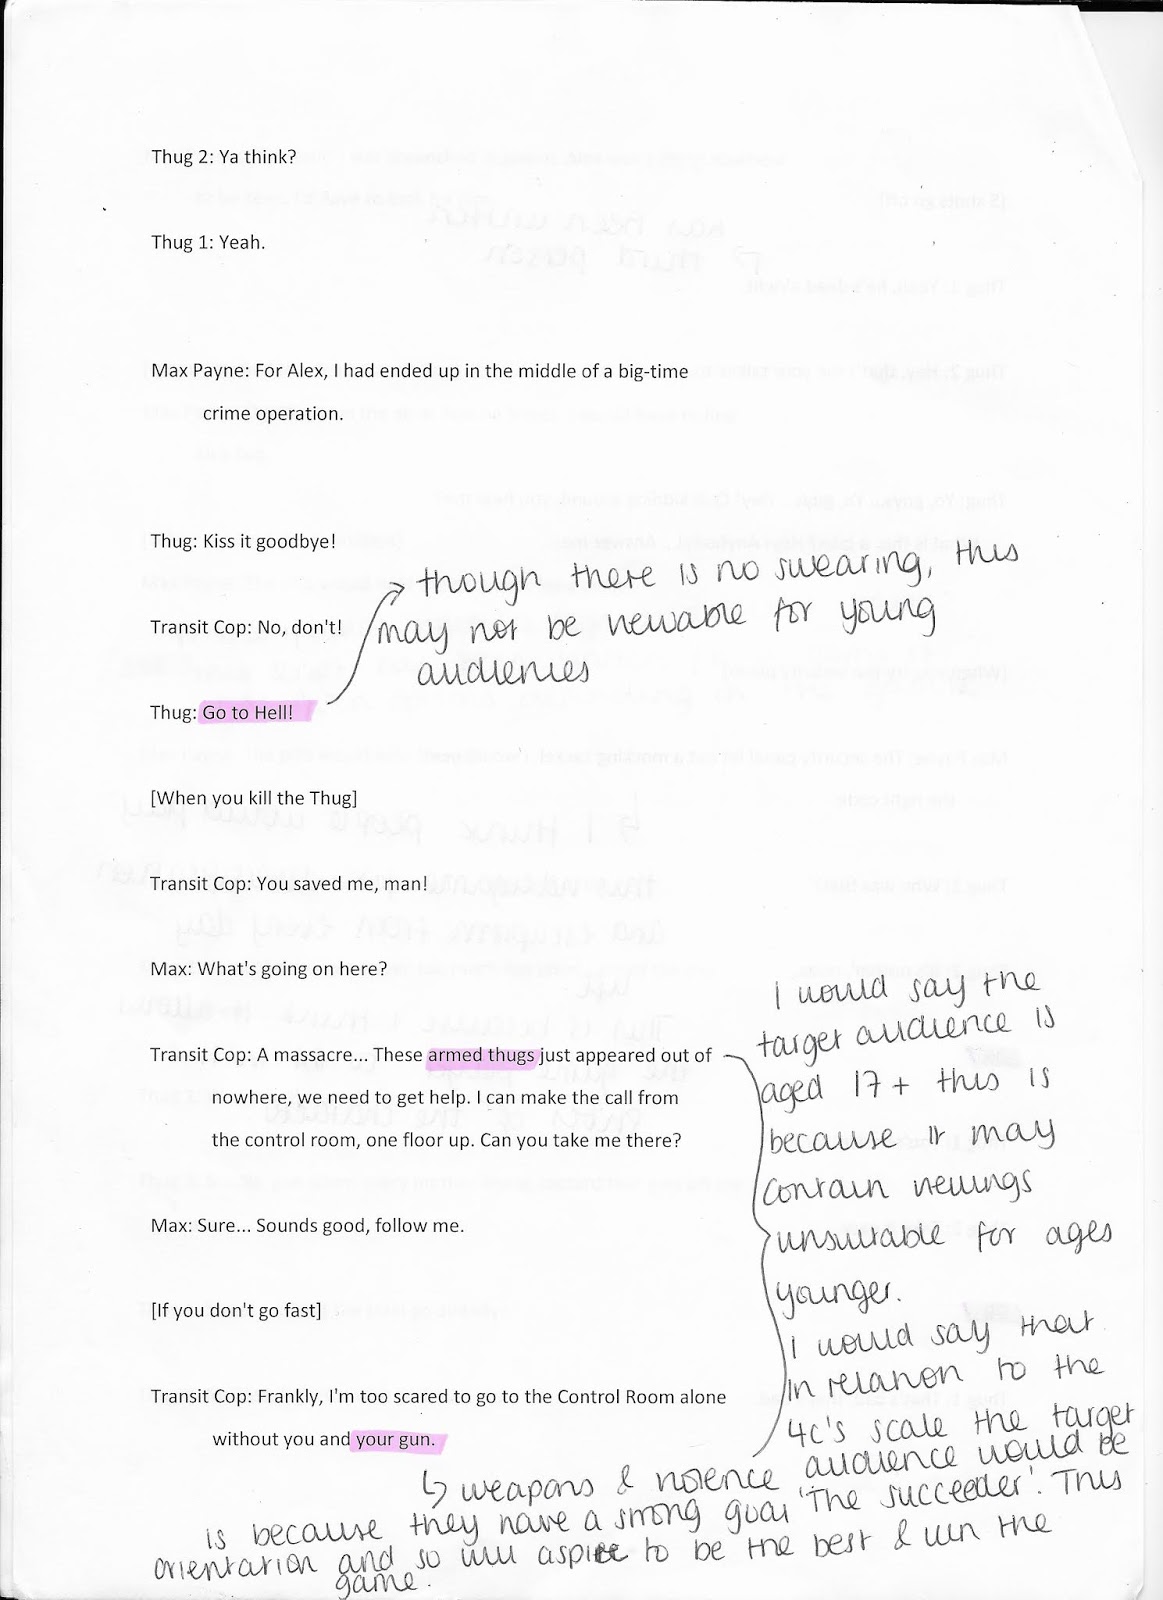 Thug 2: Ya think?
Thug 1: Yeah.
Max Payne: For Alex, I had ended up in the middle of a big-time
crime operation.
Thug: Kiss it goodbye!
though there is no swearing, this
Transit Cop: No, don't!
may not be viewable for young
audiences
Thug: Go to Hell!
[When you kill the Thug]
Transit Cop: You saved me, man!
Max: What's going on here?
Transit Cop: A massacre... These armed thugs just appeared out of
nowhere, we need to get help. I can make the call from
the control room, one floor up. Can you take me there?
Max: Sure... Sounds good, follow me.
[If you don't go fast]
Transit Cop: Frankly, I'm too scared to go to the Control Room alone
without you and your gun.
I would say the
target audience is
aged 17+ this is
because it may
contain viewings
unsuitable for ages
younger.
I would say that
in relation to the
4c's scale the target
audience would be
'The succeeder'. This
↳ weapons & violence
is because they have a strong goal
orientation and so will aspire to be the best & win the
game.